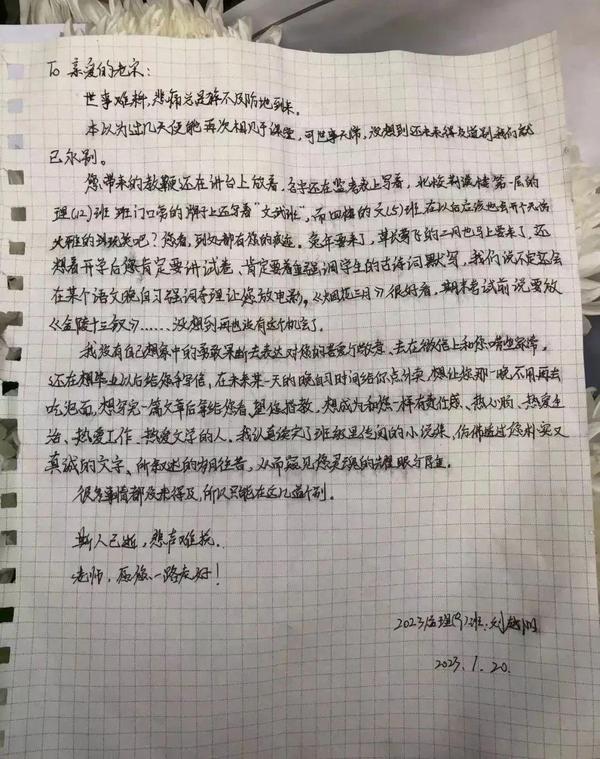 To 亲爱的老宋：
世事难料，悲痛总是猝不及防地到来。
本以为过几天便能再次相见于课堂，可世事无常，没想到还未来得及道别我们就
已永别。
您带来的教鞭还在讲台上放着，名字还在监考表上写着，北校荆泼楼第一层的
理(12)班 班门口旁的牌子上还写着“文武班”，而四楼的文(5)班在以后应该也会开个无伤
大雅的玩笑吧？您看，到处都有您的痕迹。兔年要来了，草长莺飞的三月也马上要来了，还
想着开学后您肯定要讲试卷，肯定要着重强调字生的古诗词默写，我们说不定又会
在某个语文晚自习强词夺理让您放电影。《烟花三月》很好看，期末考试前说要放
《金陵十三钗》……没想到再也没有这个机会了。
我没有自己想象中的勇敢果断去表达对您的喜爱与敬意、去在微信上和您唠些家常，
还在想毕业以后给您手写信，在未来某一天的晚自习时间给你点外卖，想让您那一晚不用再去
吃泡面，想写完一篇文章后拿给您看，望您指教，想成为和您一样有责任感、热心肠、热爱生
活、热爱工作、热爱文学的人。我认真读完了班级里传阅的小说集，仿佛透过您朴实又
真诚的文字、所叙述的岁月往昔，从而窥见您灵魂的耀眼与厚重。
很多事情都没来得及，所以只能在这儿道个别。
斯人已逝，悲声难挽。
老师，愿您一路走好！
2023届理(9)班：刘
2023.1.20.